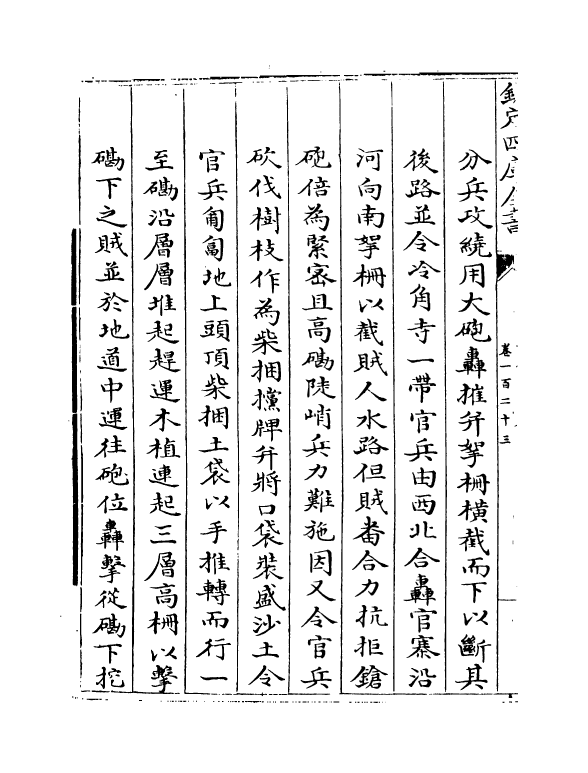 欽定四庫全書
卷一百二十三
分兵攻繞用大砲轟摧并拏柵橫截而下以斷其
後路並令冷角寺一帶官兵由西北合轟官寨沿
河向南拏柵以截賊人水路但賊畨合力抗拒鎗
砲倍為緊密且高磡陡峭兵力難施因又令官兵
砍伐樹枝作為柴捆攩牌并將口袋裝盛沙土令
官兵匍匐地上頭頂柴捆土袋以手推轉而行一
至磡沿層層堆起趕運木植連起三層高柵以擊
磡下之賊並於地道中運往砲位轟擊從磡下挖